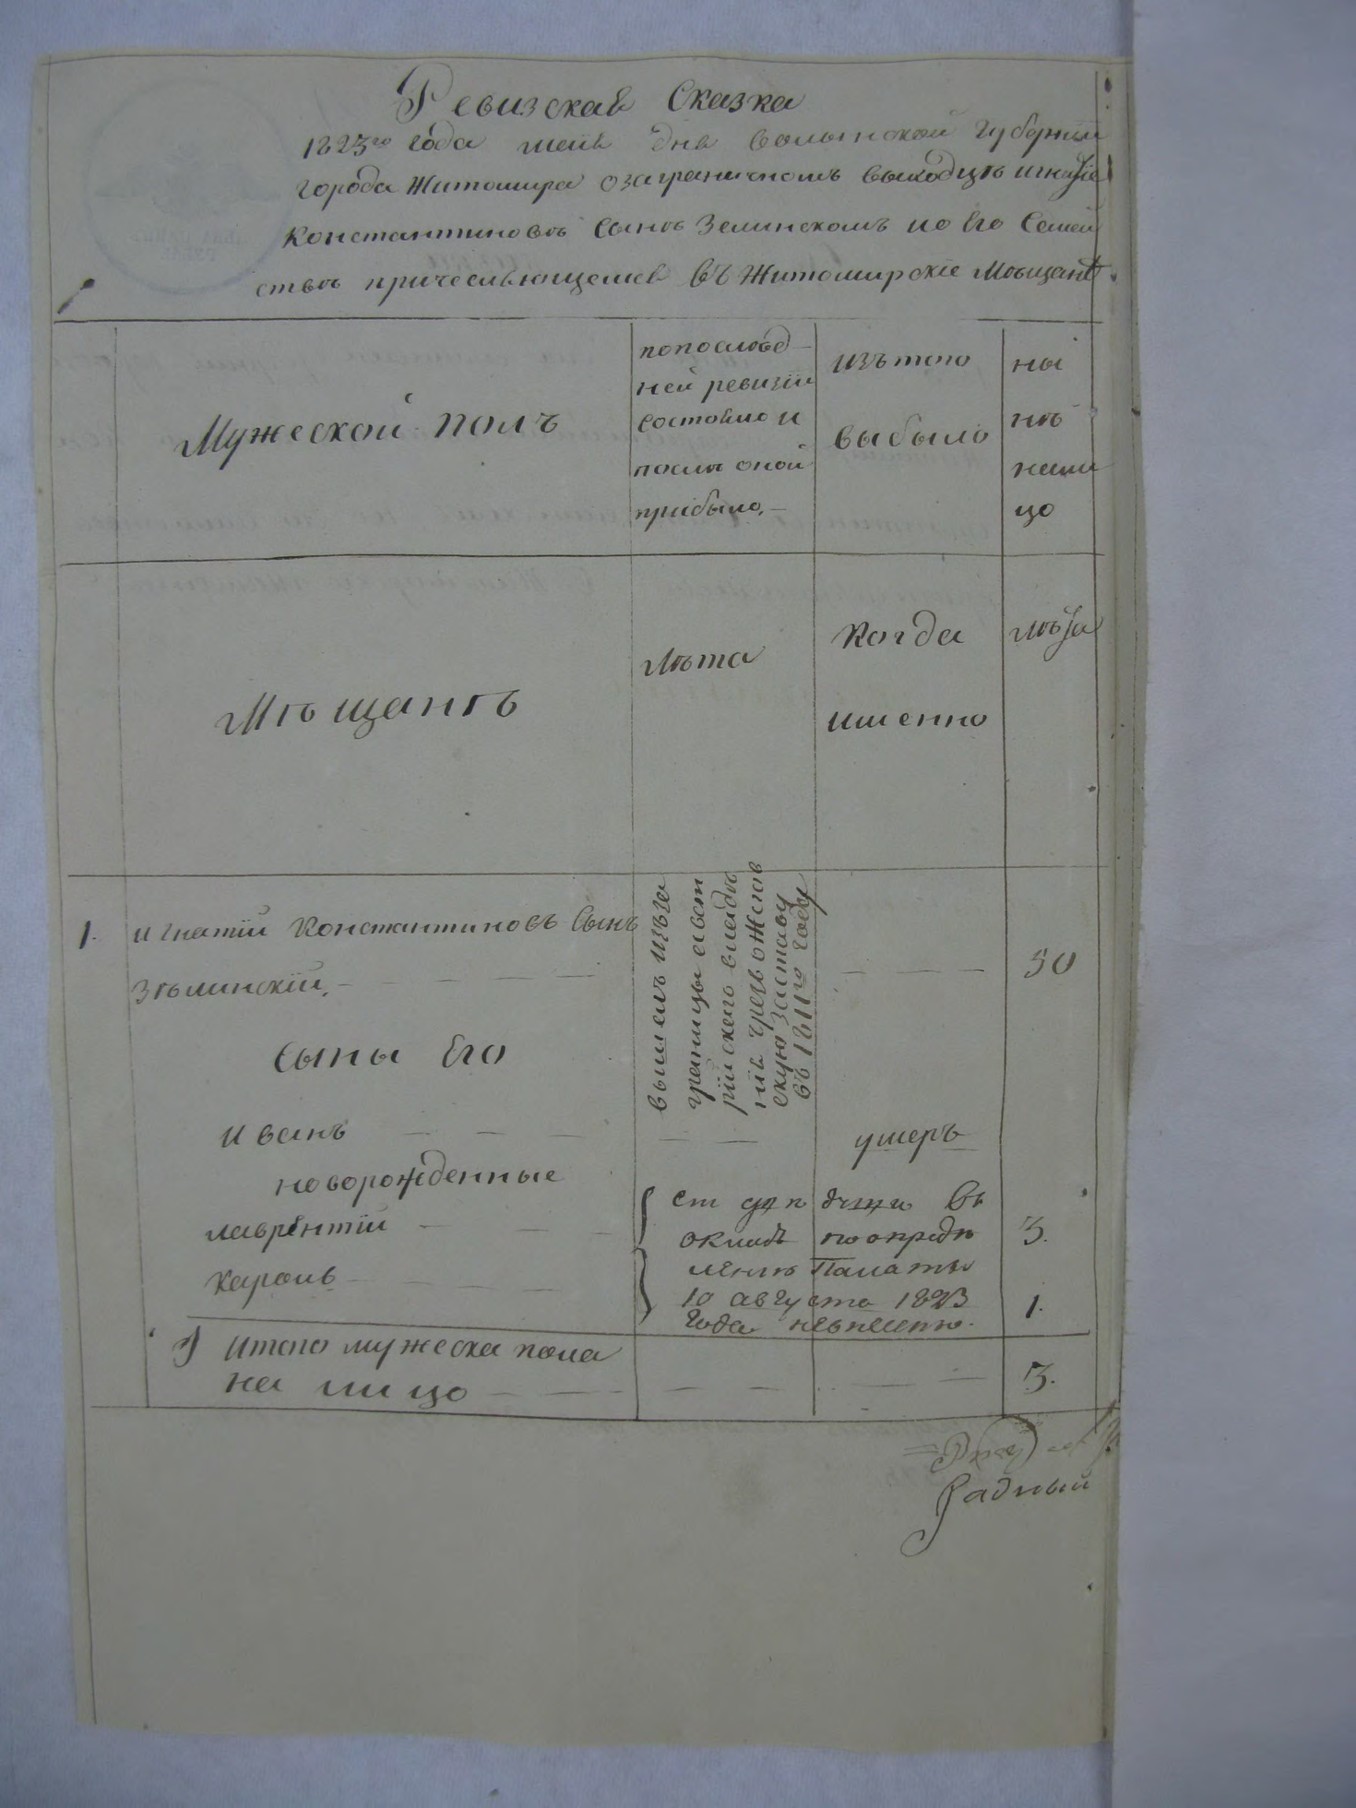 Ревизская Сказка
1823го года мая дня волынской губернiи
города Житомира о заграничномъ выходцѣ игнатiе
Константиновѣ сынѣ Зелинскомъ ио Его Семей
ствѣ причесляющемся въ Житомирскiе Мѣщане
Мужеской полъ
попослѣд
ней ревизiи
состояло и
послѣ оной
прибыло.
изътого
выбыло
ны
нѣ
нали
цо
Мѣщанъ
Лѣта
Когда
именно
Лѣта
1. игнатiй Константиновъ Сынъ
Зѣлинскiй.
вышелъ изъза
границы авст
рiйскаго владѣ
нiя чрезъ
скую заставу
въ 1811го году
50
Сыны Его
Иванъ
умеръ
новорожденные
лаврентiй
3.
кароль
1.
въ
окладъ поопредѣ
ленiю Палаты
10 августа 1823
года
Итого мужеска пола
на лицо
3.
Радный